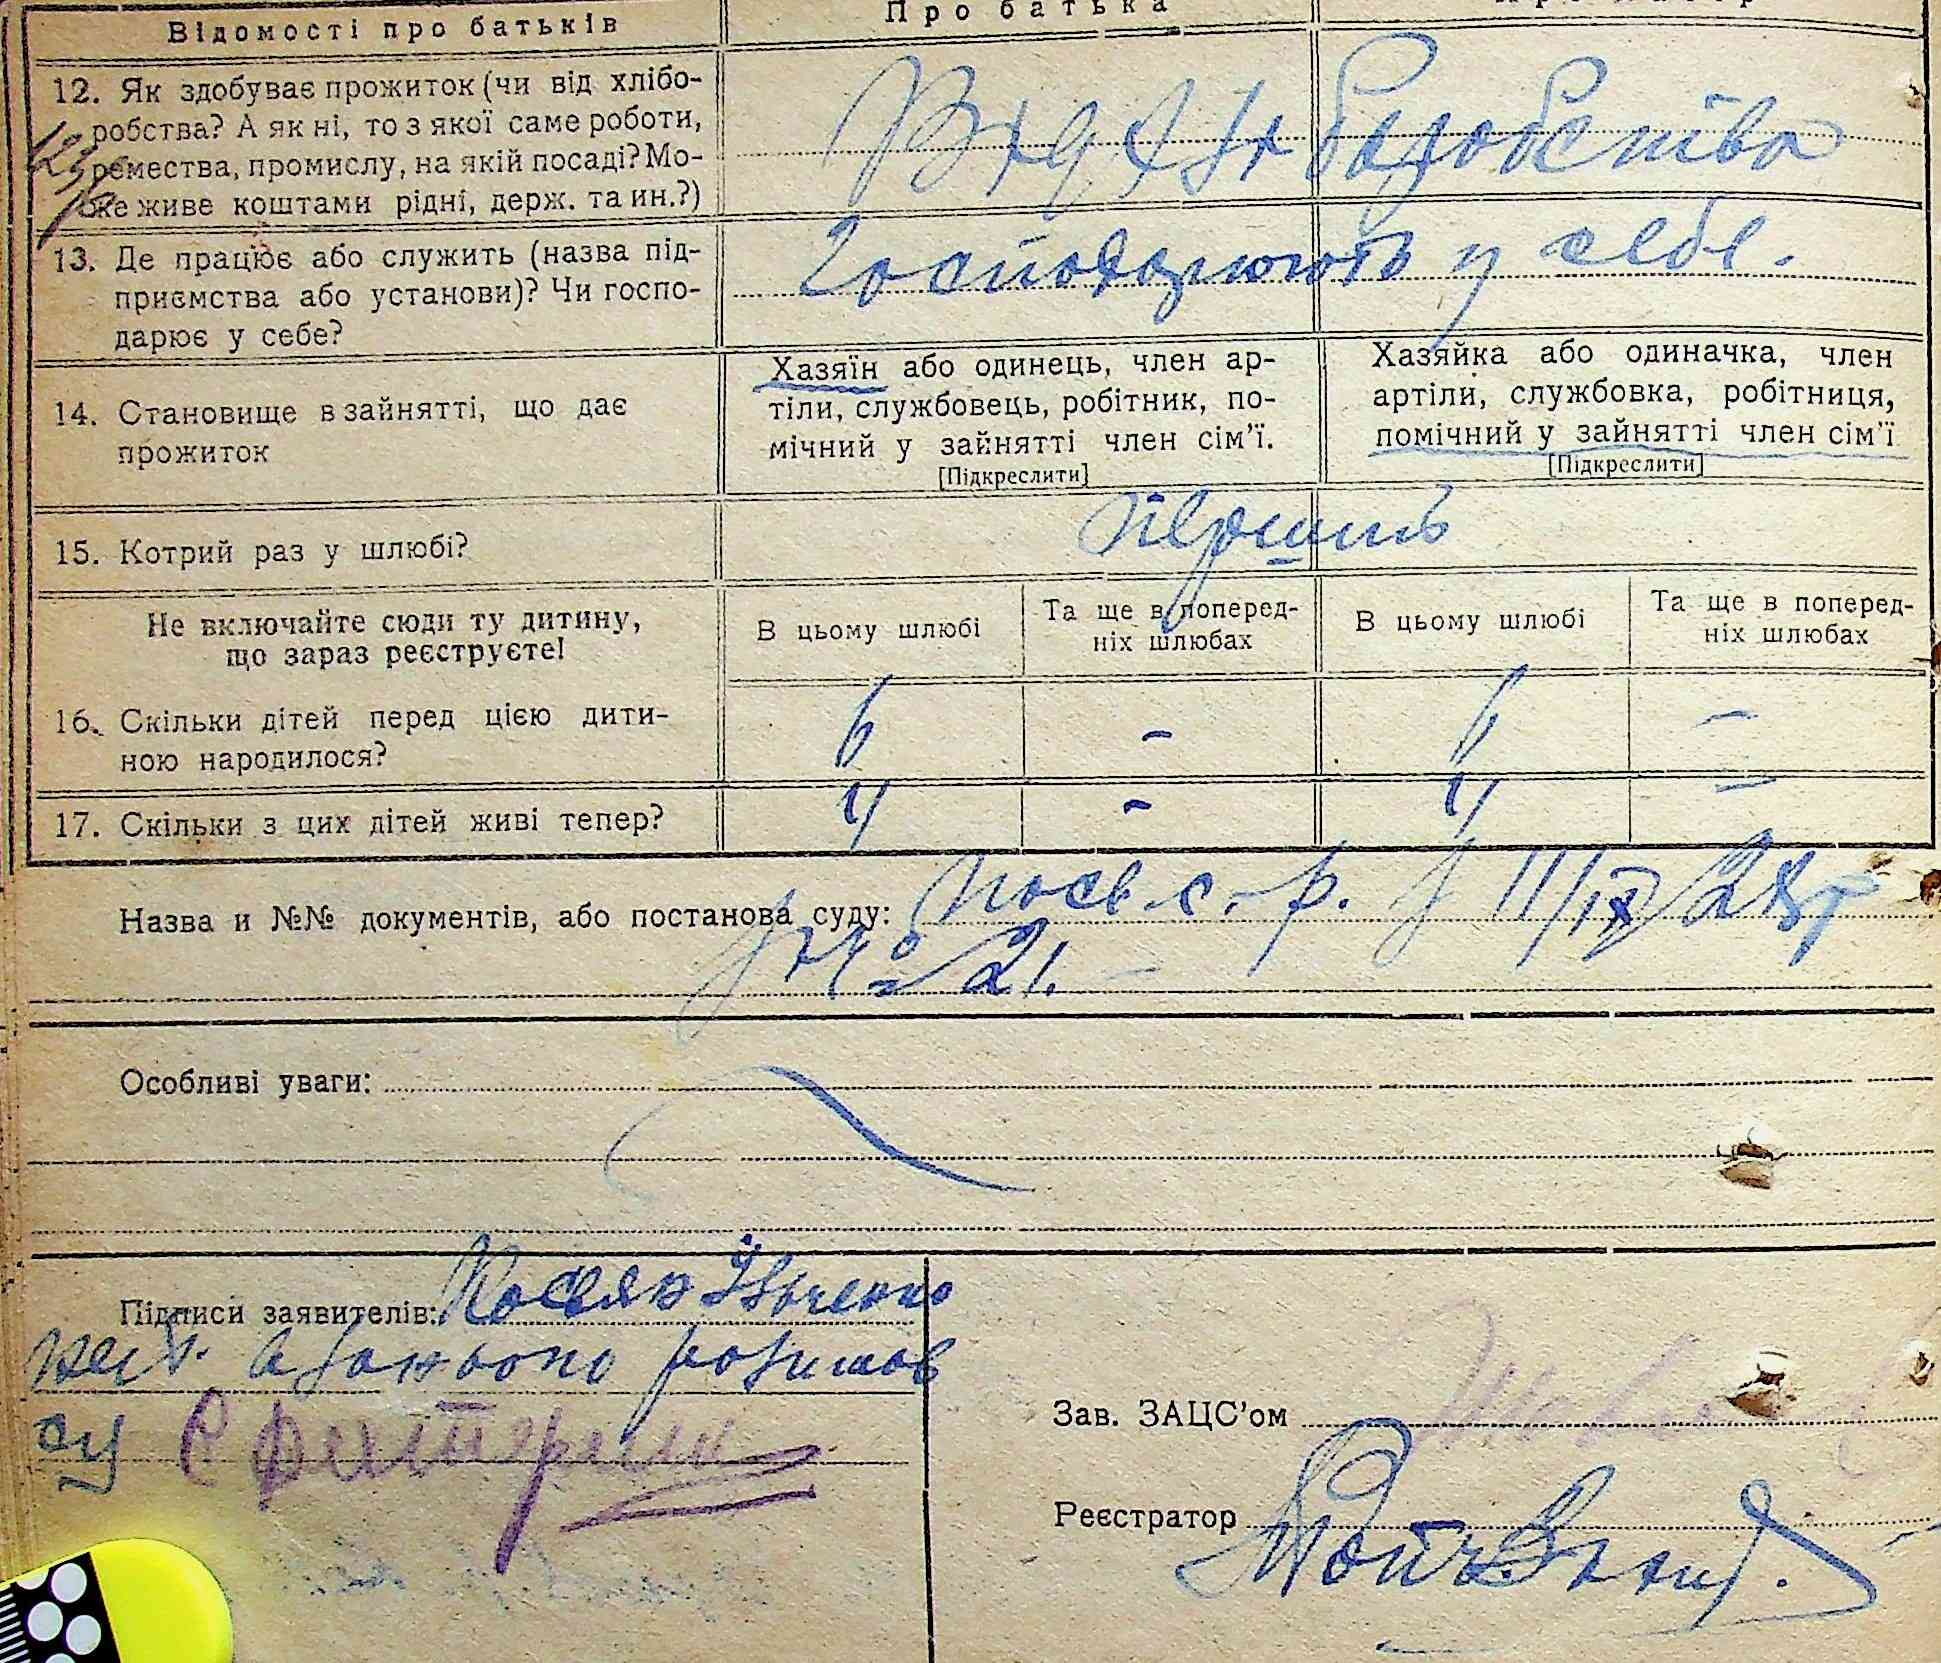 Відомості про батьків
Про батька
12. Як здобуває прожиток (чи від хлібо-
робства? А як ні, то з якої саме роботи,
ремества, промислу, на якій посаді? Мо-
же живе коштами рідні, держ. та ин.?)
13. Де працює або служить (назва під-
приємства або установи)? Чи госпо-
дарює у себе?
Господарюють у себе.
14. Становище в зайнятті, що дає
прожиток
Хазяїн або одинець, член ар-
тіли, службовець, робітник, по-
мічний у зайнятті член сім'ї.
[Підкреслити]
Хазяйка або одиначка, член
артіли, службовка, робітниця,
помічний у зайнятті член сім'ї
[Підкреслити]
15. Котрий раз у шлюбі?
Першить
Не включайте сюди ту дитину,
що зараз реєструєте!
В цьому шлюбі
Та ще в поперед-
ніх шлюбах
В цьому шлюбі
Та ще в поперед-
ніх шлюбах
16. Скільки дітей перед цією дити-
ною народилося?
6 - 6 -
17. Скільки з цих дітей живі тепер?
4 - 4 -
Назва и №№ документів, або постанова суду: Посв. с.-р. 11/IX 28р
№ 21.
Особливі уваги:
Підписи заявителів:
су
Зав. ЗАЦС'ом
Реєстратор